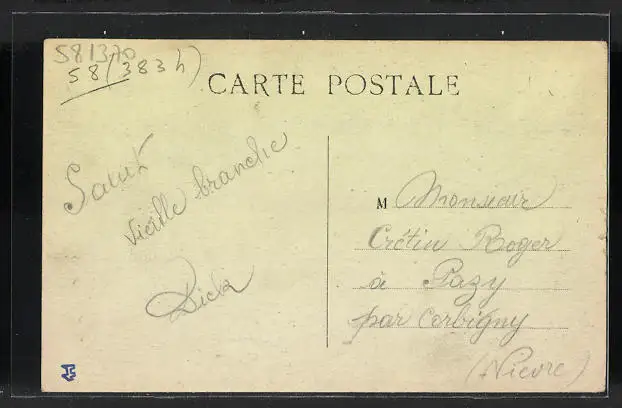 581370
58 (383 h)
CARTE POSTALE
Salut
vieille branche
Dick
M Monsieur
Crétin Roger
à Pazy
par Corbigny
(Nièvre)